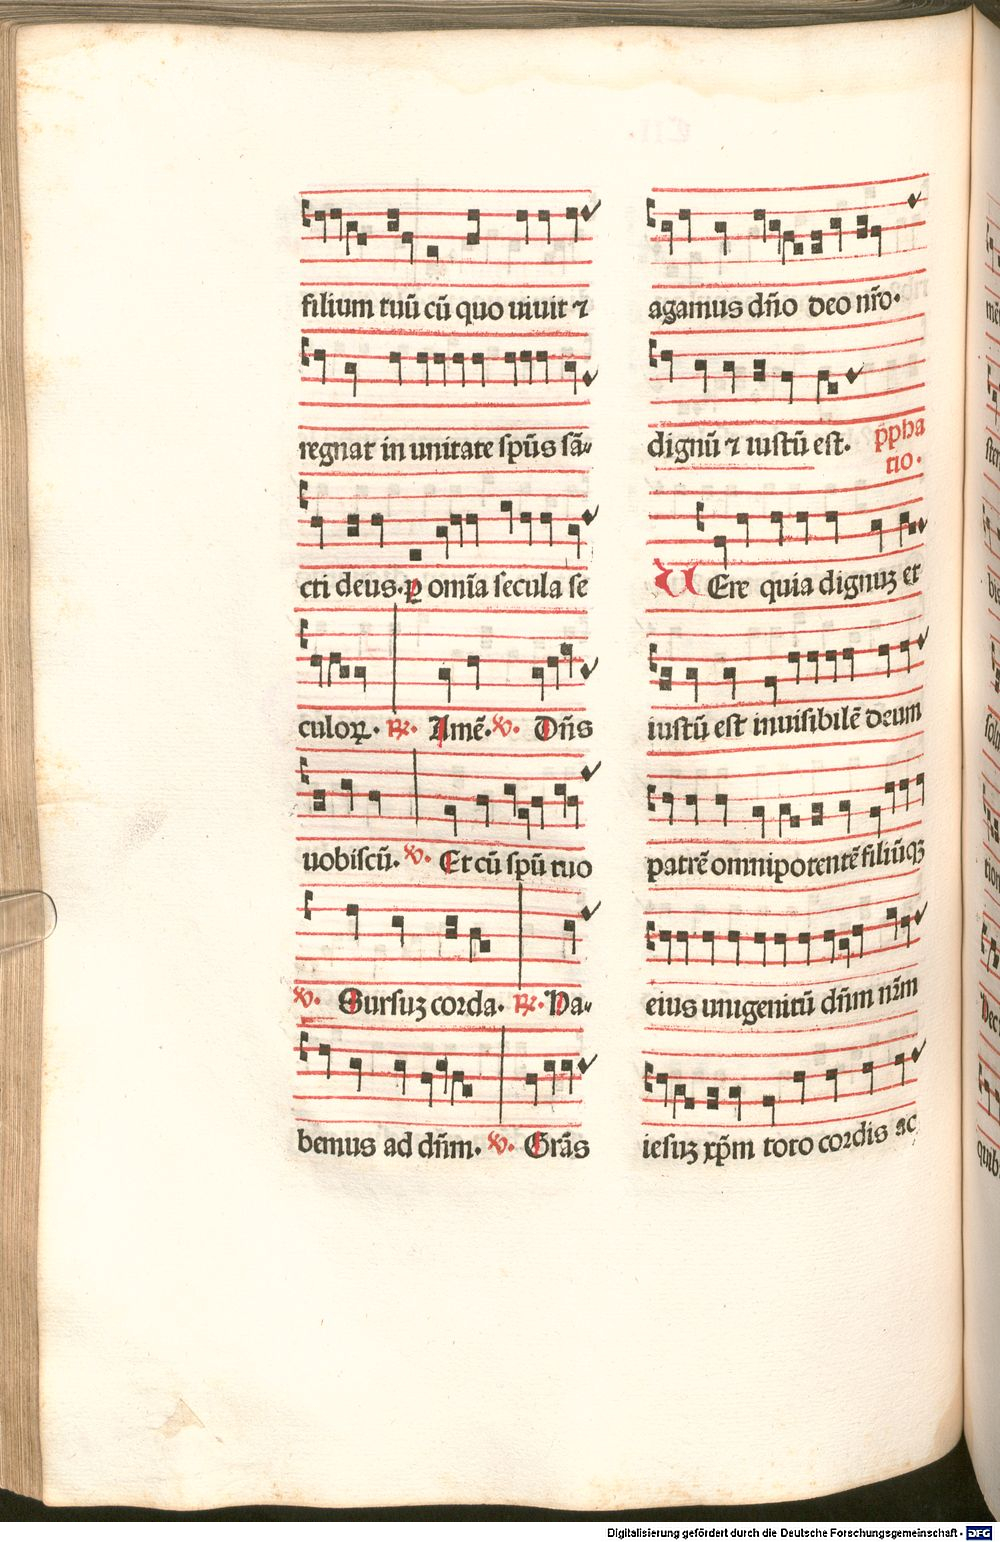 filium tuū cū quo uiuit ⁊
regnat in unitate ſpūs ſā⸗
cti deus. ꝑ omīa ſecula ſe
culoꝝ. ℟. Amē. ℣. Dñs
uobiſcū. ℣. Et cū ſpū tuo
℣. Surſuꝫ corda. ℟. Ha⸗
bemus ad dñm. ℣. Grãs
agamus dño deo nr̄o.
dignū ⁊ iuſtū eſt. p̄pha
tio.
VEre quia dignuꝫ et
iuſtū eſt inuiſibilē deum
patrē omnipotentē filiūqꝫ
eius unigenitū dñm nr̄m
ieſuꝫ xp̄m toto coꝛdis ac
Digitalisierung gefördert durch die Deutsche Forschungsgemeinschaft - DFG